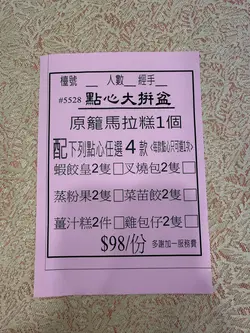 檯號__ 人數__ 經手__
#5528 點心大拼盆
原籠馬拉糕1個
配下列點心任選4款<每款點心只可選1次>
蝦餃皇2隻□叉燒包2隻□
蒸粉果2隻□菜苗餃2隻□
薑汁糕2件□雞包仔2隻□
$98/份 多謝加一服務費